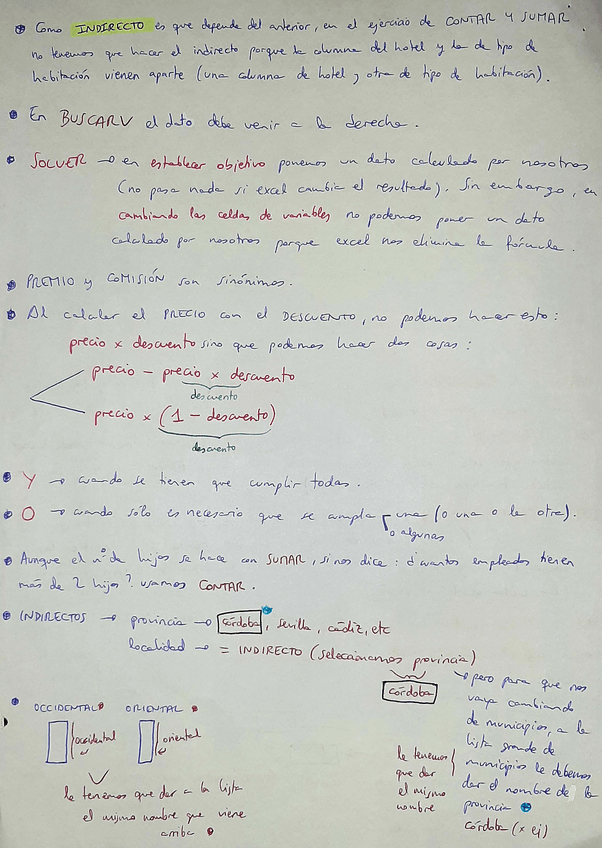 • Como INDIRECTO es que depende del anterior, en el ejercicio de CONTAR Y SUMAR
no tenemos que hacer el indirecto porque la columna del hotel y la de tipo de
habitación vienen aparte (una columna de hotel y otra de tipo de habitación).
• En BUSCARV el dato debe venir a la derecha.
• SOLVER → en establecer objetivo ponemos un dato calculado por nosotros
(no pasa nada si excel cambia el resultado). Sin embargo, en
cambiando las celdas de variables no podemos poner un dato
calculado por nosotros porque excel nos elimina la fórmula.
• PREMIO y COMISIÓN son sinónimos.
• Al calcular el PRECIO con el DESCUENTO, no podemos hacer esto:
precio x descuento sino que podemos hacer dos cosas:
precio - precio x descuento
descuento
precio x (1 - descuento)
descuento
• Y → cuando se tienen que cumplir todas.
• O → cuando sólo es necesario que se cumpla una (o una o la otra).
o algunas
• Aunque el nº de hijos se hace con SUMAR, si nos dice: ¿cuántos empleados tienen
más de 2 hijos? usamos CONTAR.
• INDIRECTOS → provincia → córdoba, sevilla, cádiz, etc
localidad → = INDIRECTO (seleccionamos provincia)
córdoba
→ pero para que nos
vaya cambiando
de municipios, a la
lista grande de
municipios le debemos
dar el nombre de la
provincia
córdoba (x ej)
le tenemos
que dar
el mismo
nombre
• OCCIDENTAL ORIENTAL
occidental oriental
le tenemos que dar a la lista
el mismo nombre que viene
arriba